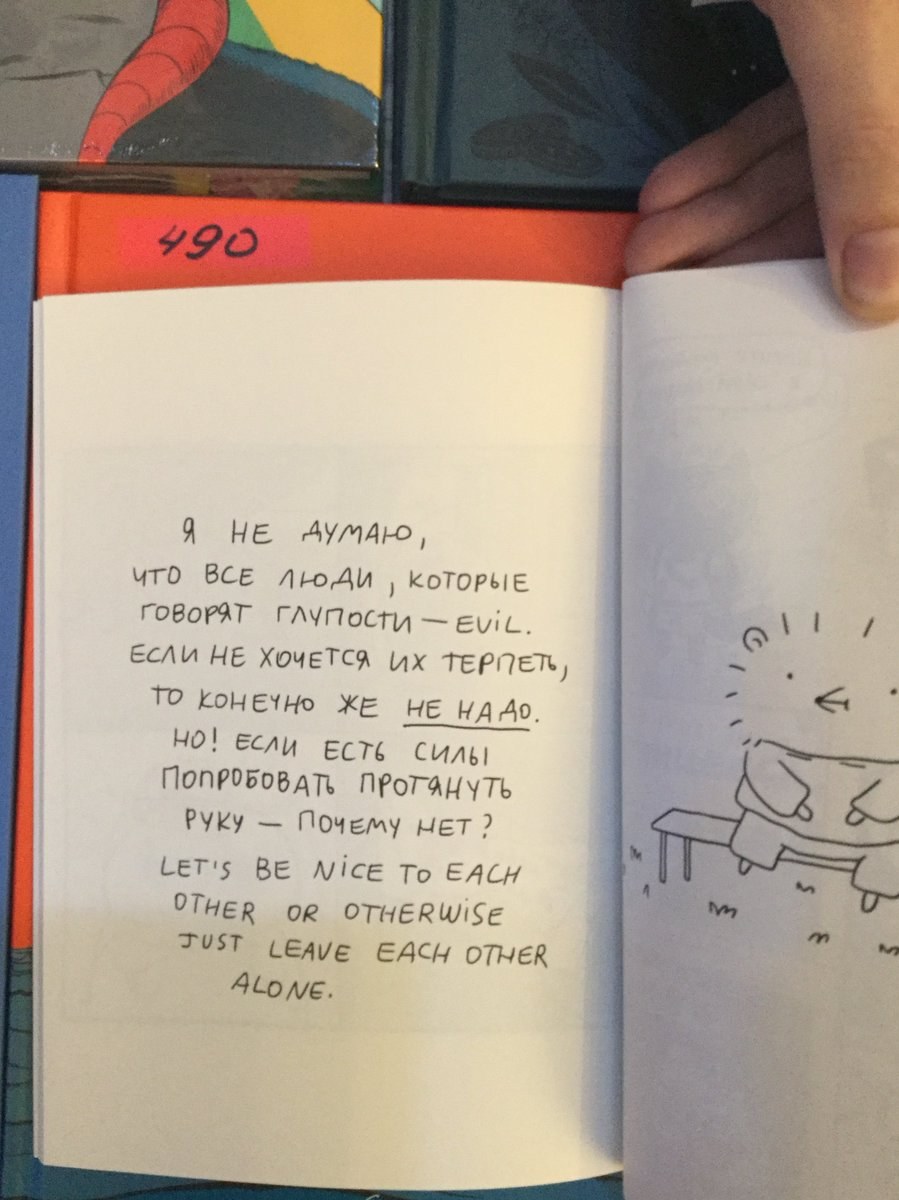 490
Я НЕ ДУМАЮ,
ЧТО ВСЕ ЛЮДИ, КОТОРЫЕ
ГОВОРЯТ ГЛУПОСТИ — EViL.
ЕСЛИ НЕ ХОЧЕТСЯ ИХ ТЕРПЕТЬ,
ТО КОНЕЧНО ЖЕ НЕ НАДО.
НО! ЕСЛИ ЕСТЬ СИЛЫ
ПОПРОБОВАТЬ ПРОТЯНУТЬ
РУКУ — ПОЧЕМУ НЕТ?
LET'S BE NiCE TO EACH
OTHER OR OTHERWiSE
JUST LEAVE EACH OTHER
ALONE.